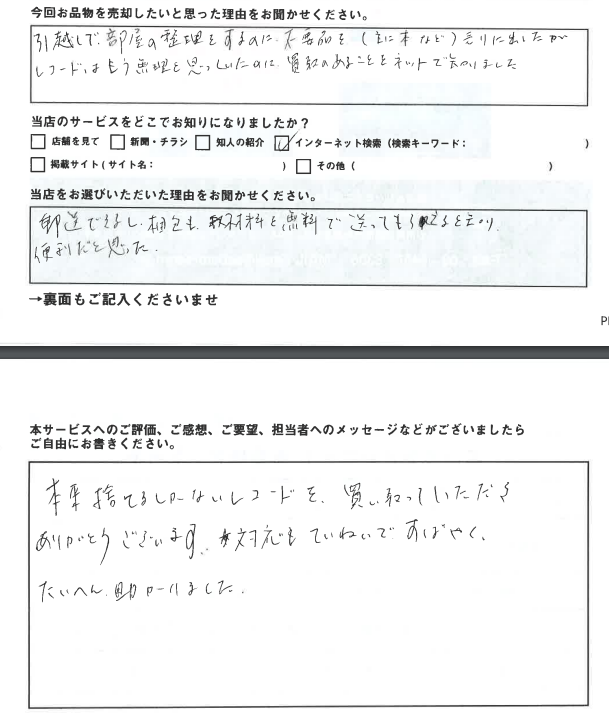 今回お品物を売却したいと思った理由をお聞かせください。
引越しで部屋の整理をするのに、不要品を(主に本など)売りに出したが
レコードはもう無理と思っていたのに、買取のあることをネットで知りました
当店のサービスをどこでお知りになりましたか?
店舗を見て 新聞・チラシ 知人の紹介 インターネット検索(検索キーワード: )
掲載サイト(サイト名: ) その他( )
当店をお選びいただいた理由をお聞かせください。
郵送できるし、梱包も、材料を無料で送ってもらえるとあり、
便利だと思った。
→裏面もご記入くださいませ
本サービスへのご評価、ご感想、ご要望、担当者へのメッセージなどがございましたら
ご自由にお書きください。
本来捨てるしかないレコードを、買い取っていただき
ありがとうございます。対応もていねいですばやく、
たいへん助かりました。